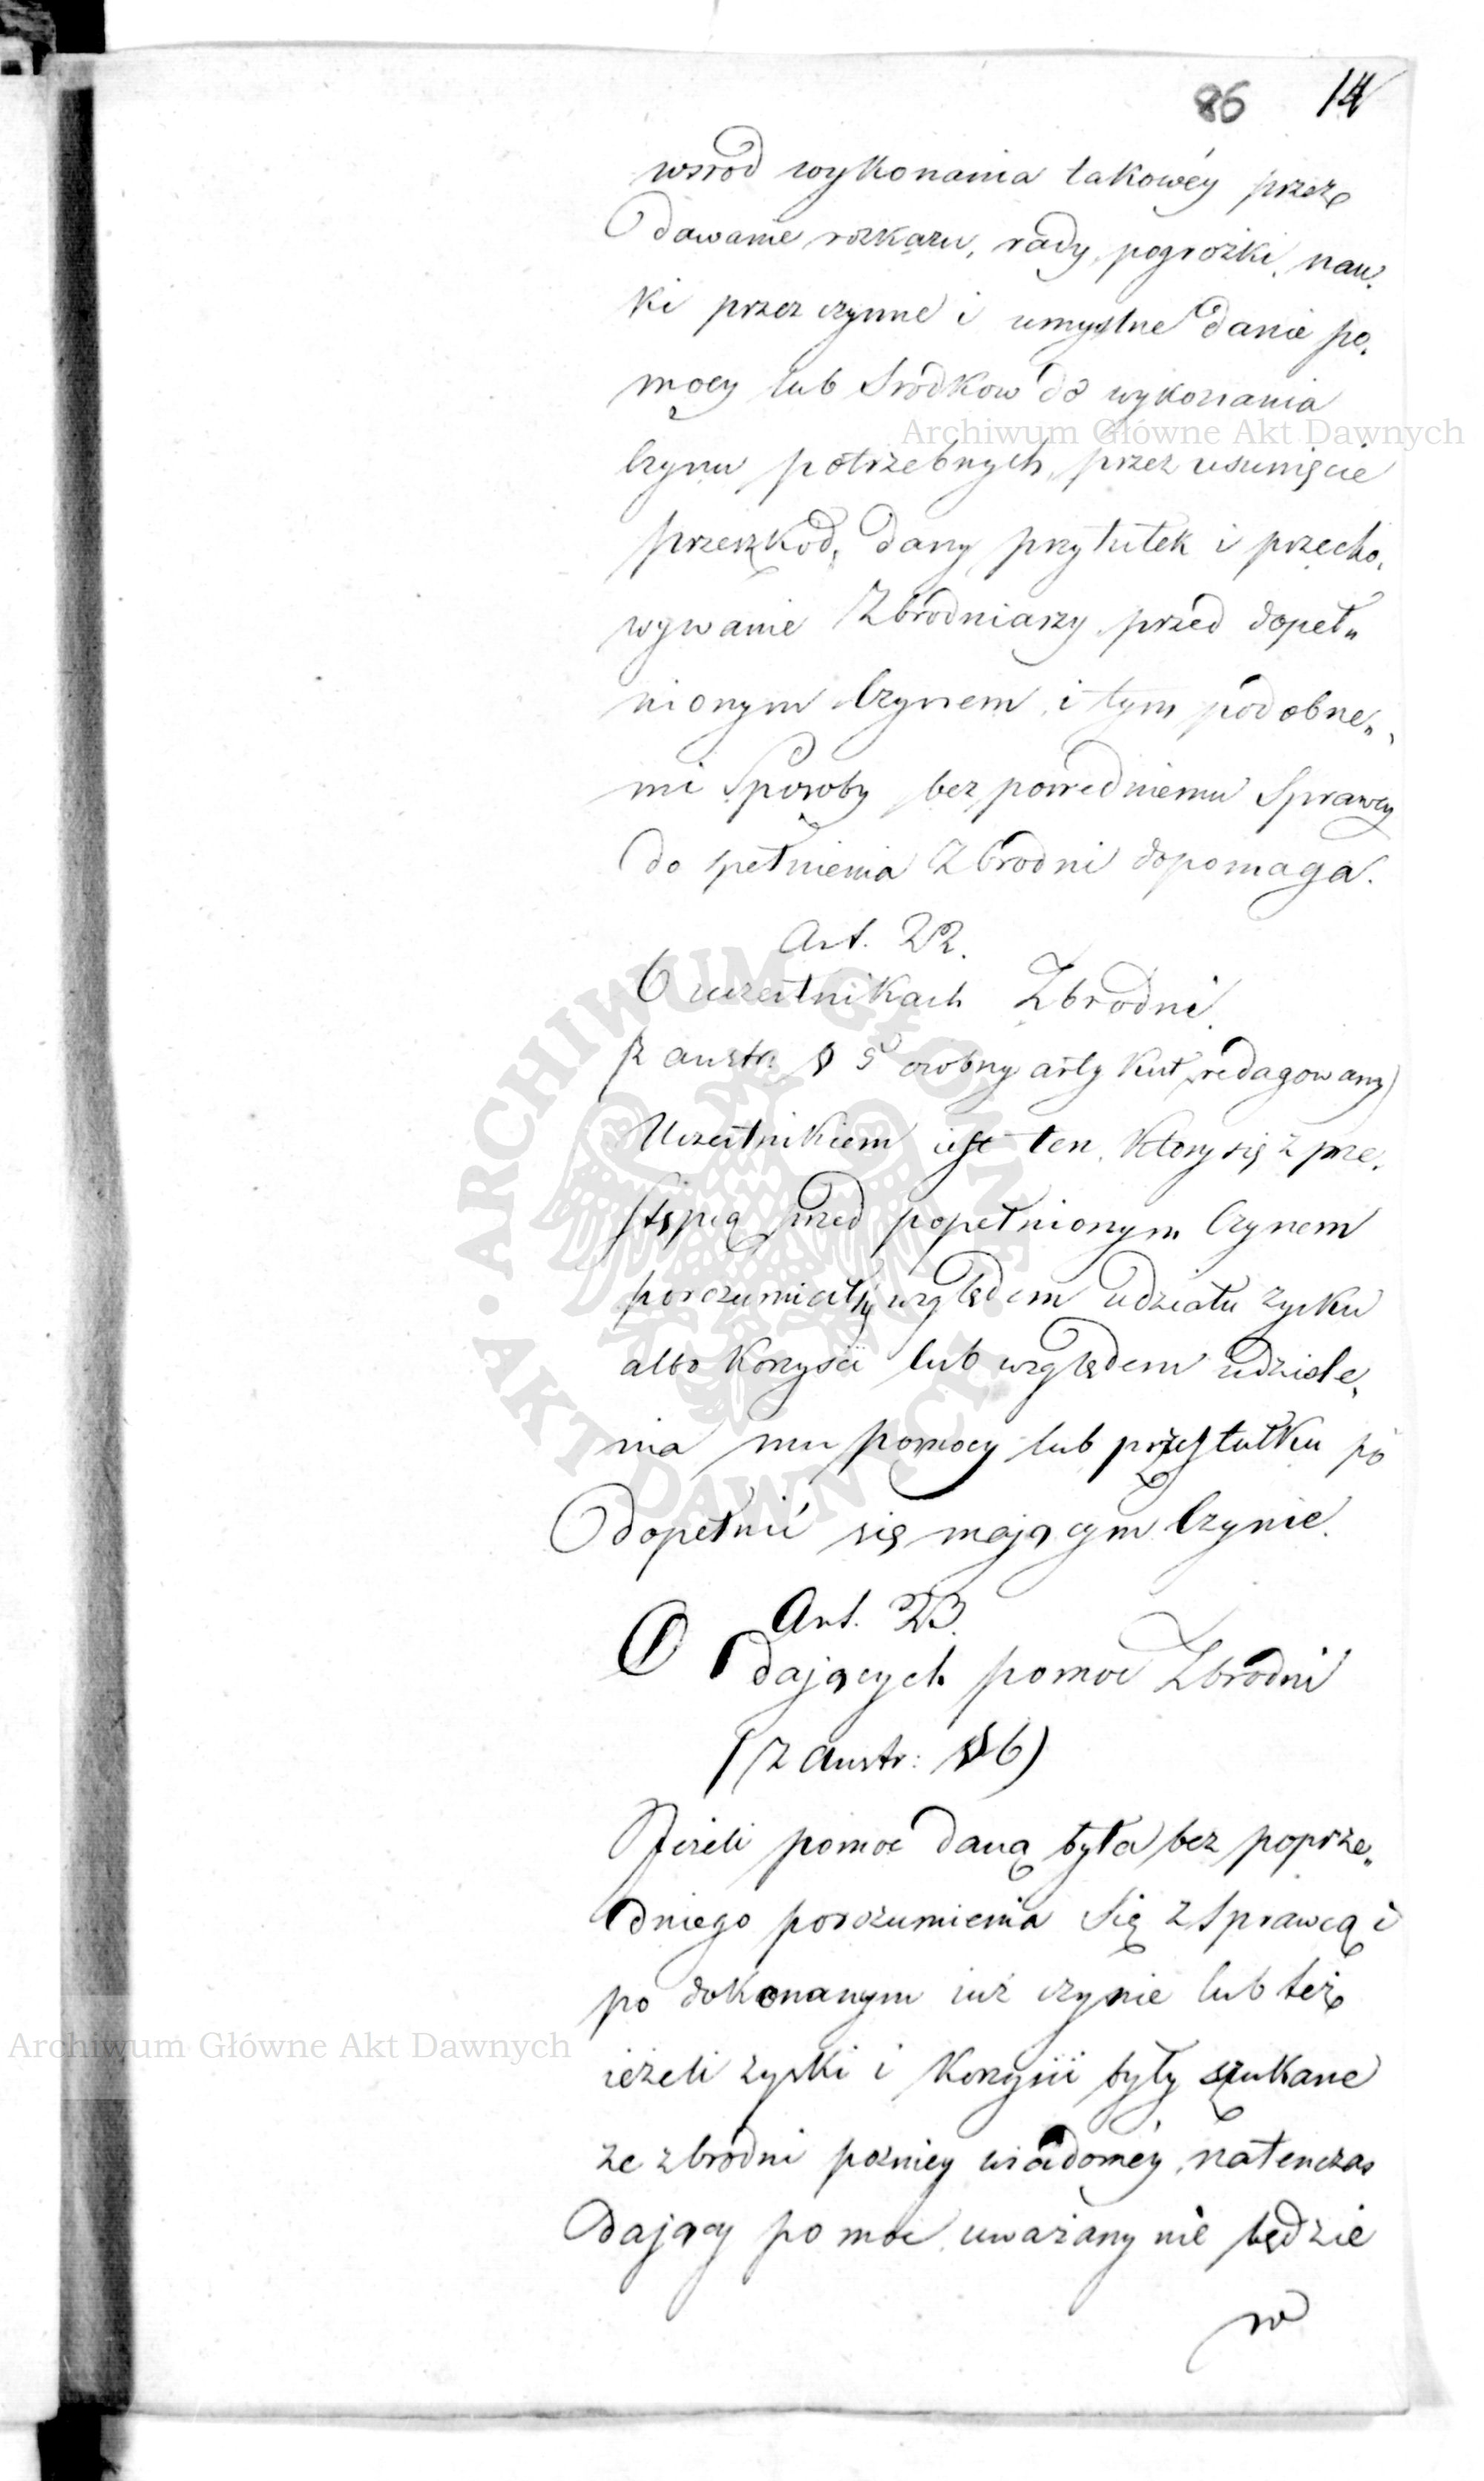 86 14
wsrod wykonania takowéy przez
dawanie rozkazu, rady, pogrozki, nau,
ki przez czynne i umyslne danie po,
mocy lub Srodkow do wykonania
Czynu potrzebnych, przez usunięcie
przeszkod, dany przytułek i przecho,
wywanie Zbrodniarzy przed dopeł„
nionym Czynem, i tym podobne„
mi Sposoby bezposredniemu Sprawcy
do spełnienia Zbrodni dopomaga.
Art. 22.
O uczestnikach Zbrodni.
(z austr: § 5 osobny artykuł redagowany)
Uczestnikiem iest ten, ktory się z prze,
stępcą przed popełnionym Czynem
porozumiał względem udziału zysku
albo Korzysci lub względem udziele,
nia mu pomocy lub przytułku po
dopełnić się maiącym Czynie.
Art. 23.
O dających pomoc Zbrodni
(z austr: § 6)
Jeżeli pomoc daną była bez poprze„
dniego porozumienia Się z Sprawcą i
po dokonanym iuż czynie lub też
ieżeli zyski i Korzysci były szukane
ze zbrodni pozniey wiadoméy, natenczas
dający pomoc uważany nie będzie
w
Archiwum Główne Akt Dawnych
Archiwum Główne Akt Dawnych
ARCHIWUM GŁÓWNE • AKT DAWNYCH •